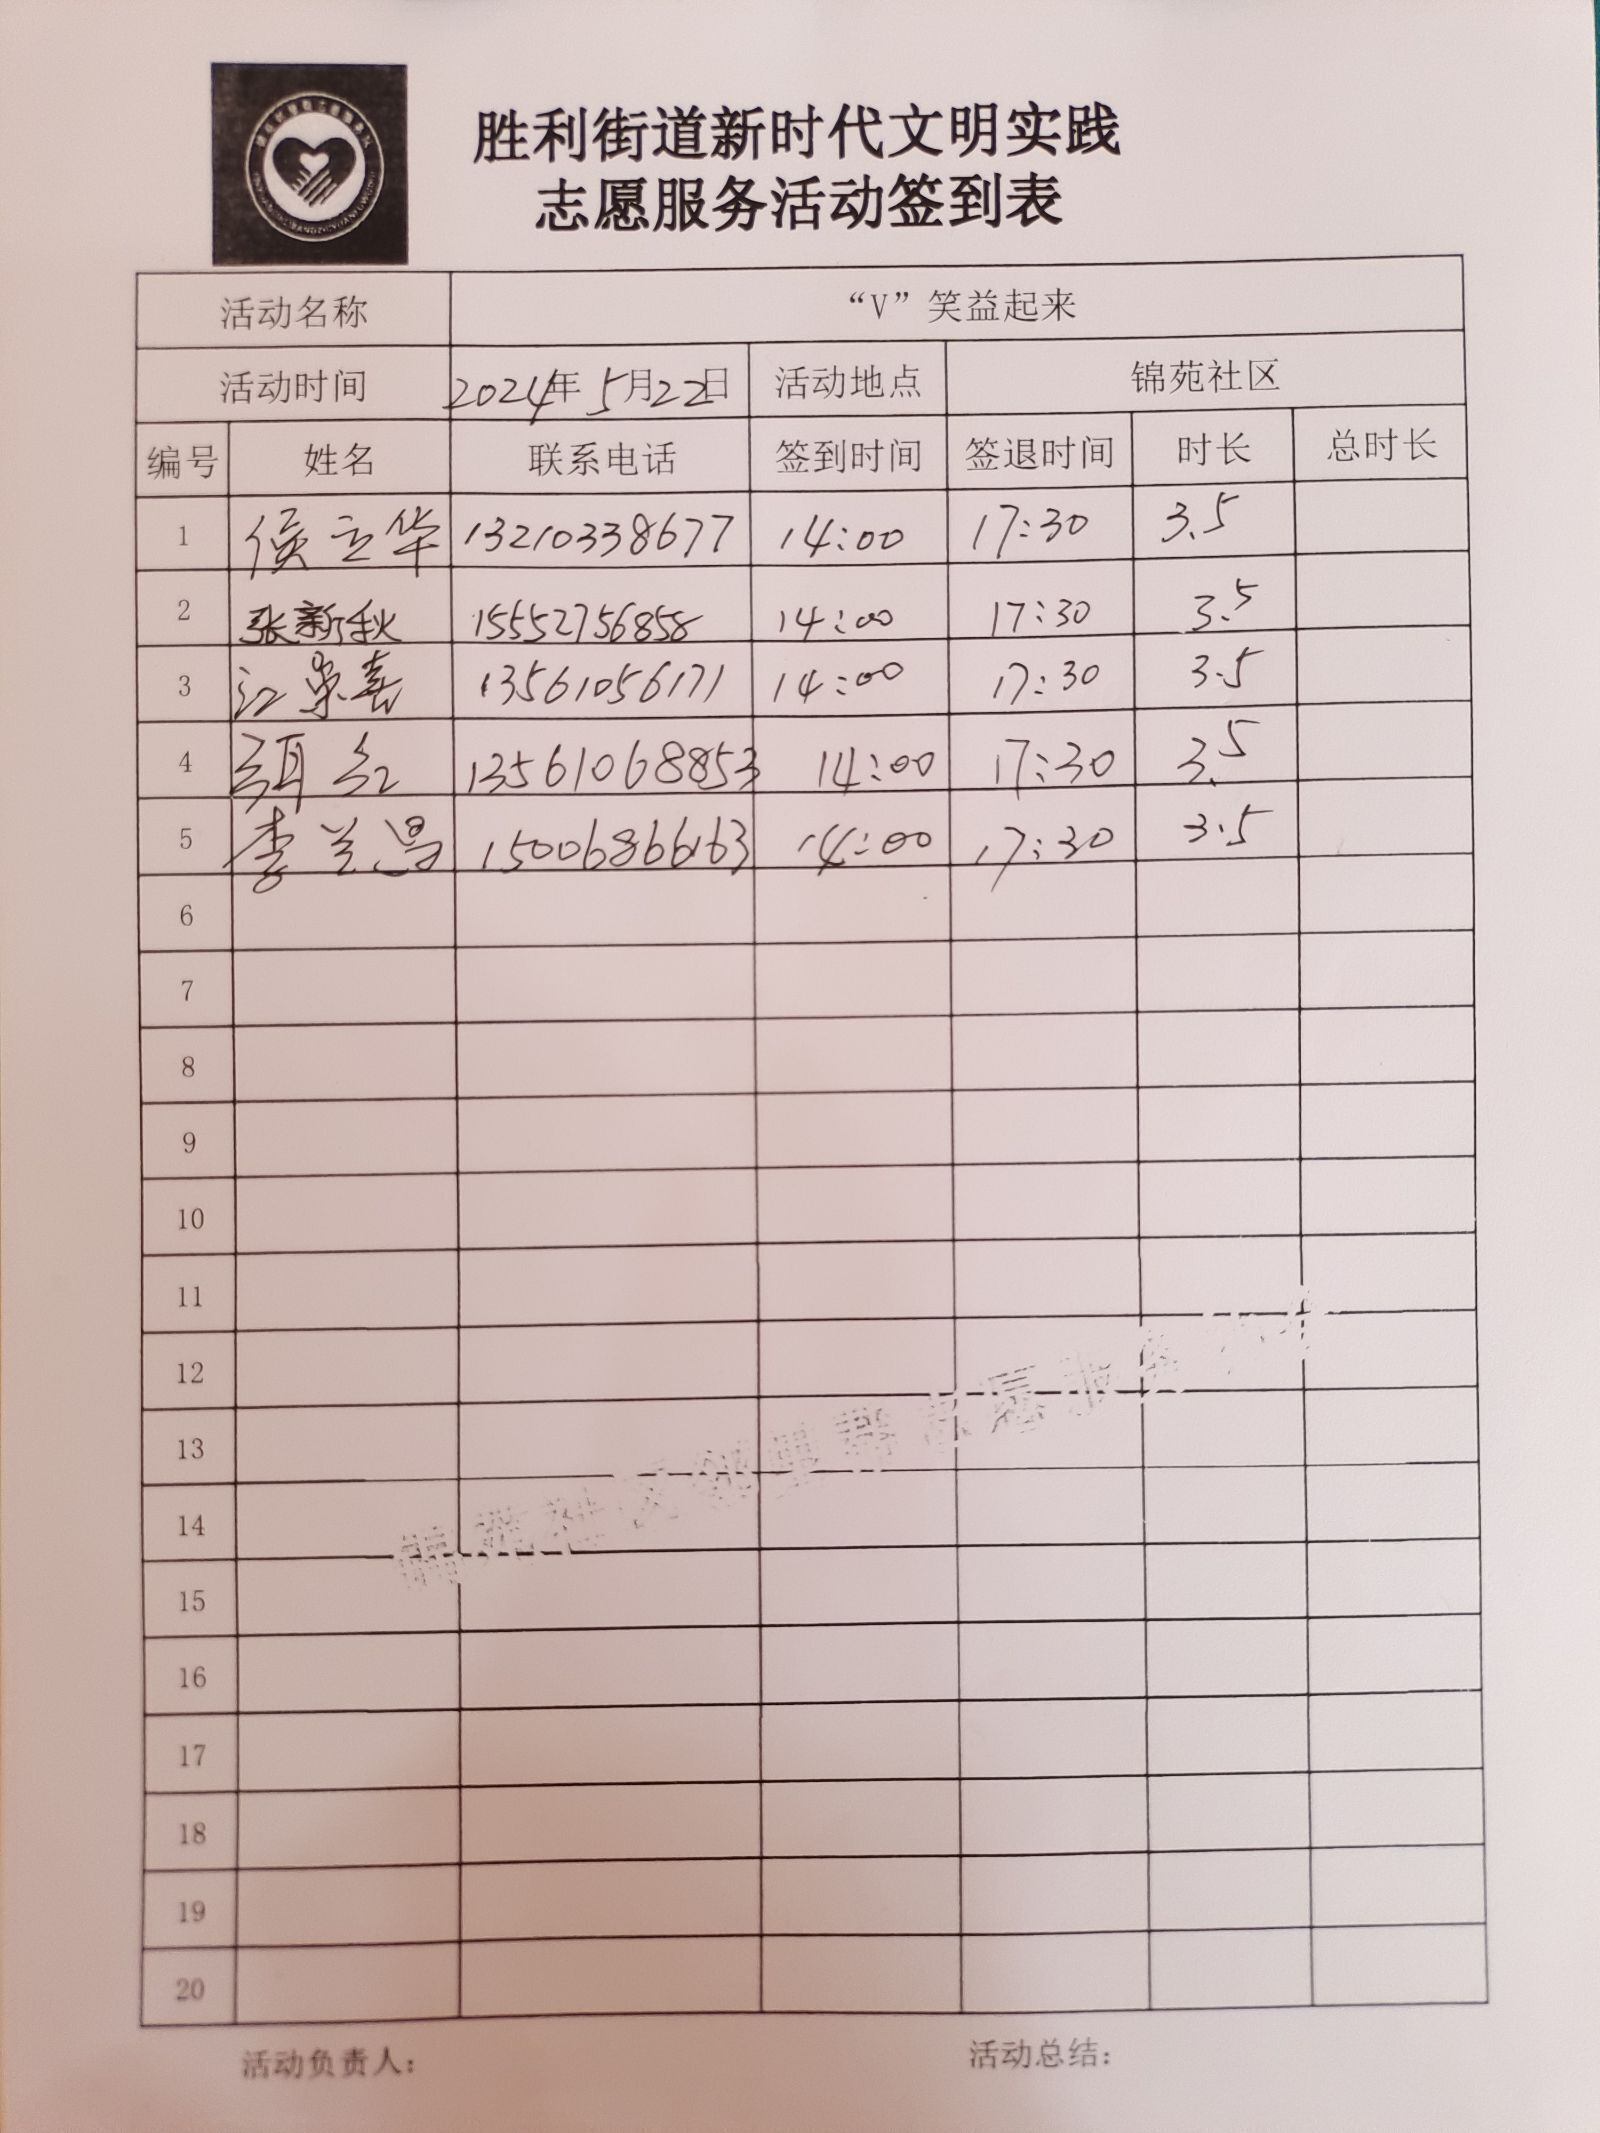 胜利街道新时代文明实践
志愿服务活动签到表
活动名称 “V”笑益起来
活动时间 2024年5月22日 活动地点 锦苑社区
编号 姓名 联系电话 签到时间 签退时间 时长 总时长
1 侯立华 13210338677 14:00 17:30 3.5
2 张新秋 15552756858 14:00 17:30 3.5
3 江 喜 13561056171 14:00 17:30 3.5
4 红 13561068853 14:00 17:30 3.5
5 李兰 15006866163 14:00 17:30 3.5
6
7
8
9
10
11
12
13
14
15
16
17
18
19
20
活动负责人：
活动总结：